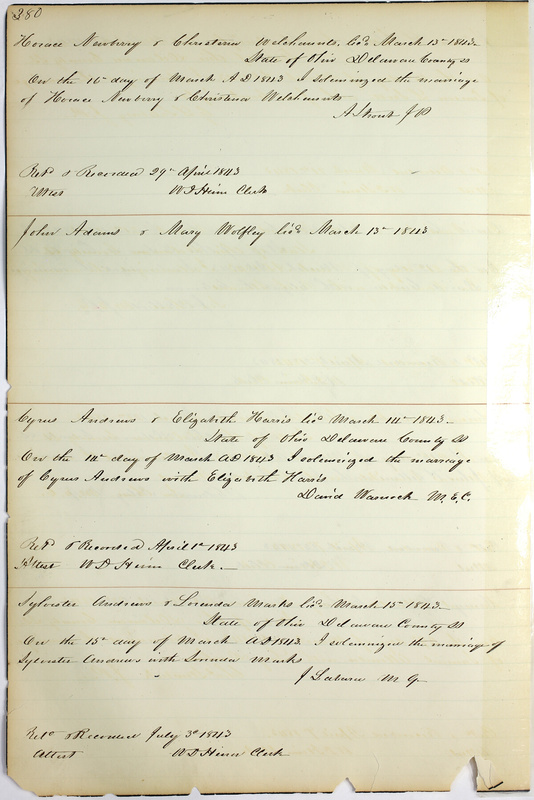 380
Horace Newberry & Christena Welchaunts. Licd March 13th 1843.
State of Ohio Delaware County SS
On the 16th day of March A D 1843 I solemnized the marriage
of Horace Newberry & Christena Welchaunts
A Strout J P
Retd & Recorded 29th April 1843
Attest W D Heim Clerk
John Adams & Mary Wolfley licd March 13th 1843
Cyrus Andrews & Elizabeth Harris licd March 14th 1843.
State of Ohio Delaware County SS
On the 14th day of March AD 1843 I solemnized the marriage
of Cyrus Andrews with Elizabeth Harris
David Warnock M. E. C.
Retd & Recorded April 1st 1843
Attest W D Heim Clerk.
Sylvester Andrews & Lorinda Marks licd March 15th 1843.
State of Ohio Delaware County SS
On the 15th day of March AD 1843. I solemnized the marriage of
Sylvester Andrews with Lorinda Marks
J Labarn M G
Retd & Recorded July 3d 1843
Attest W D Heim Clerk